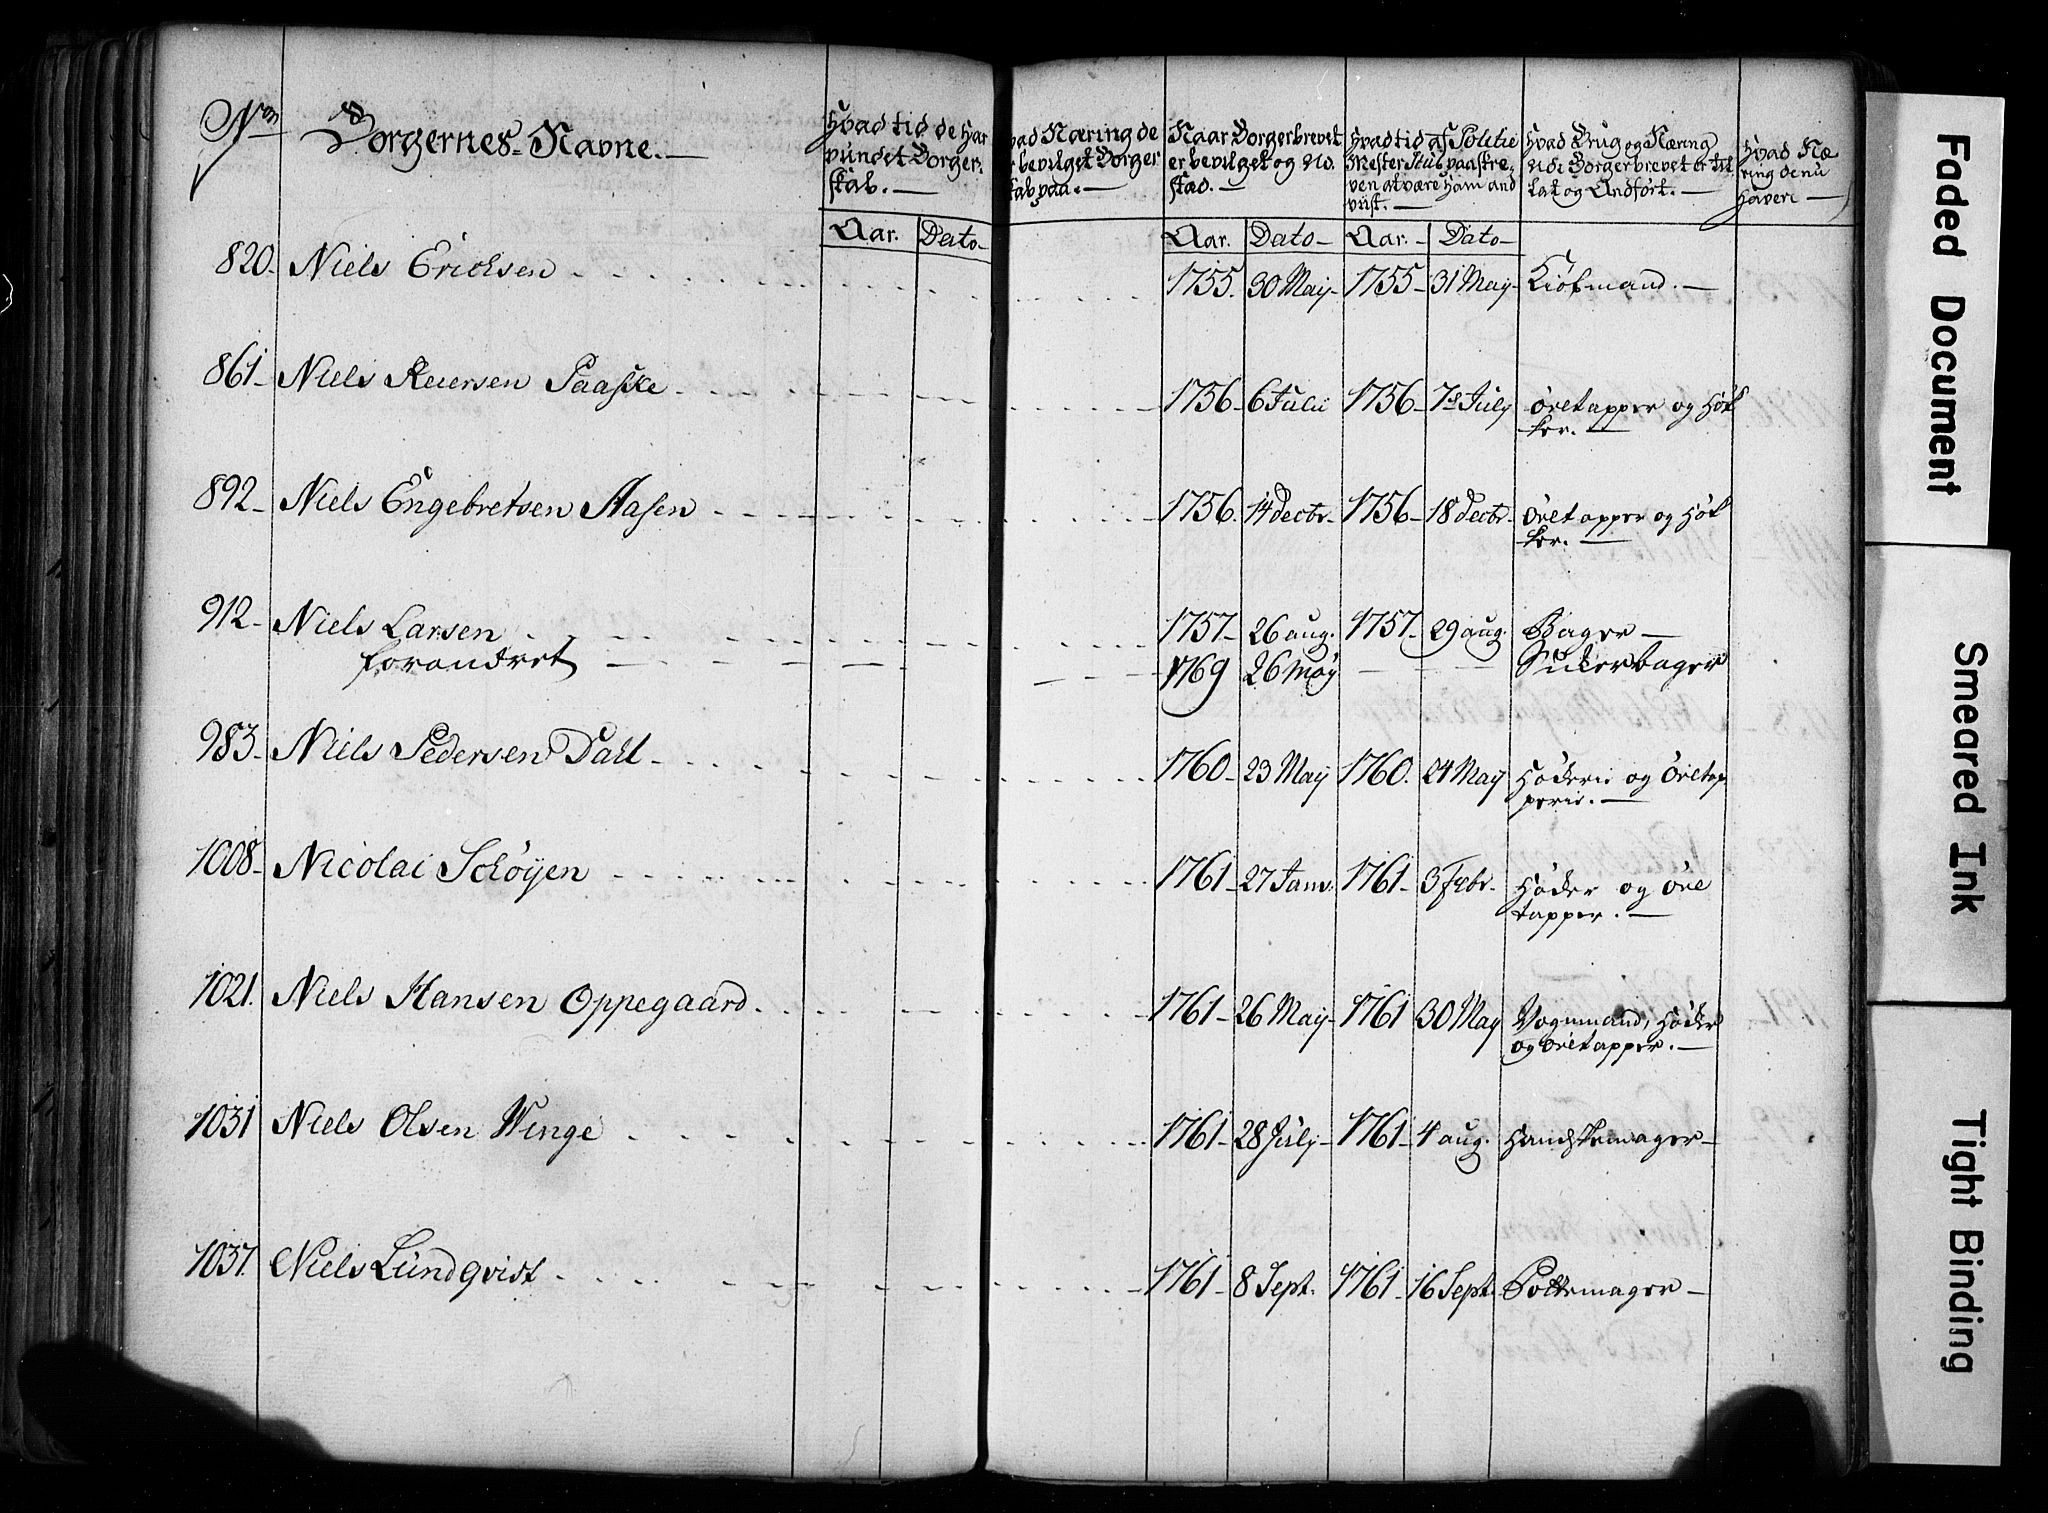 No Borgernes Navne. — Hvad tid de har vundet Borgerskab. — Hvad Næring de er bevilget Borgerskab paa. — Naar Borgerbrevet er bevilget og Ud. stæd. — Hvad tid af Politie Mester Stub paastreven at være ham andviist. — Hvad Brug og Næring Udi Borgerbrevet er tillat og Anført. — Hvad Næring de nu haver —
Aar. Dato — Aar. Dato — Aar. — Dato —
820. Niels Erichsen 1755. 30 May — 1755 — 31 May — Kiøbmand. —
861 — Niels Reiersen Paaske 1756 — 6 Julii 1756 — 7de July Øltapper og Høkker. —
892 — Niels Engebretsen Aasen 1756. 14 Decbr — 1756 — 18 Decbr — Øltapper og Høkker. —
912 — Niels Larsen 1757 — 26 aug. 1757 — 29 aug. Bager —
forandret — 1769 26 May — Sukerbager
983 — Niels Pedersen Dahl — 1760 — 23 May 1760. 24 May Høkerie og Øltapperie. —
1008 — Nicolai Schøyen 1761 — 27 Janv. 1761 — 3 Febr. Høker og Øltapper. —
1021. Niels Hansen Oppegaard 1761 — 26 May — 1761 30 May Vognmand, Høker og Øltapper. —
1031 Niels Olsen Winge 1761 — 28 July — 1761 — 4 aug. Handskemager —
1037. Niels Lundqvist 1761 — 8 Sept. 1761 — 16 Sept. Pottemager —
Faded Document
Smeared Ink
Tight Binding